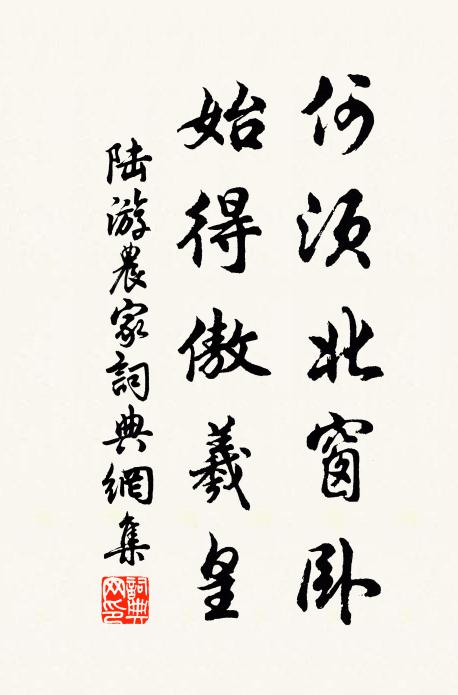 何須北窗臥
始得傲羲皇
陸游農家詞典網集
詞典网印